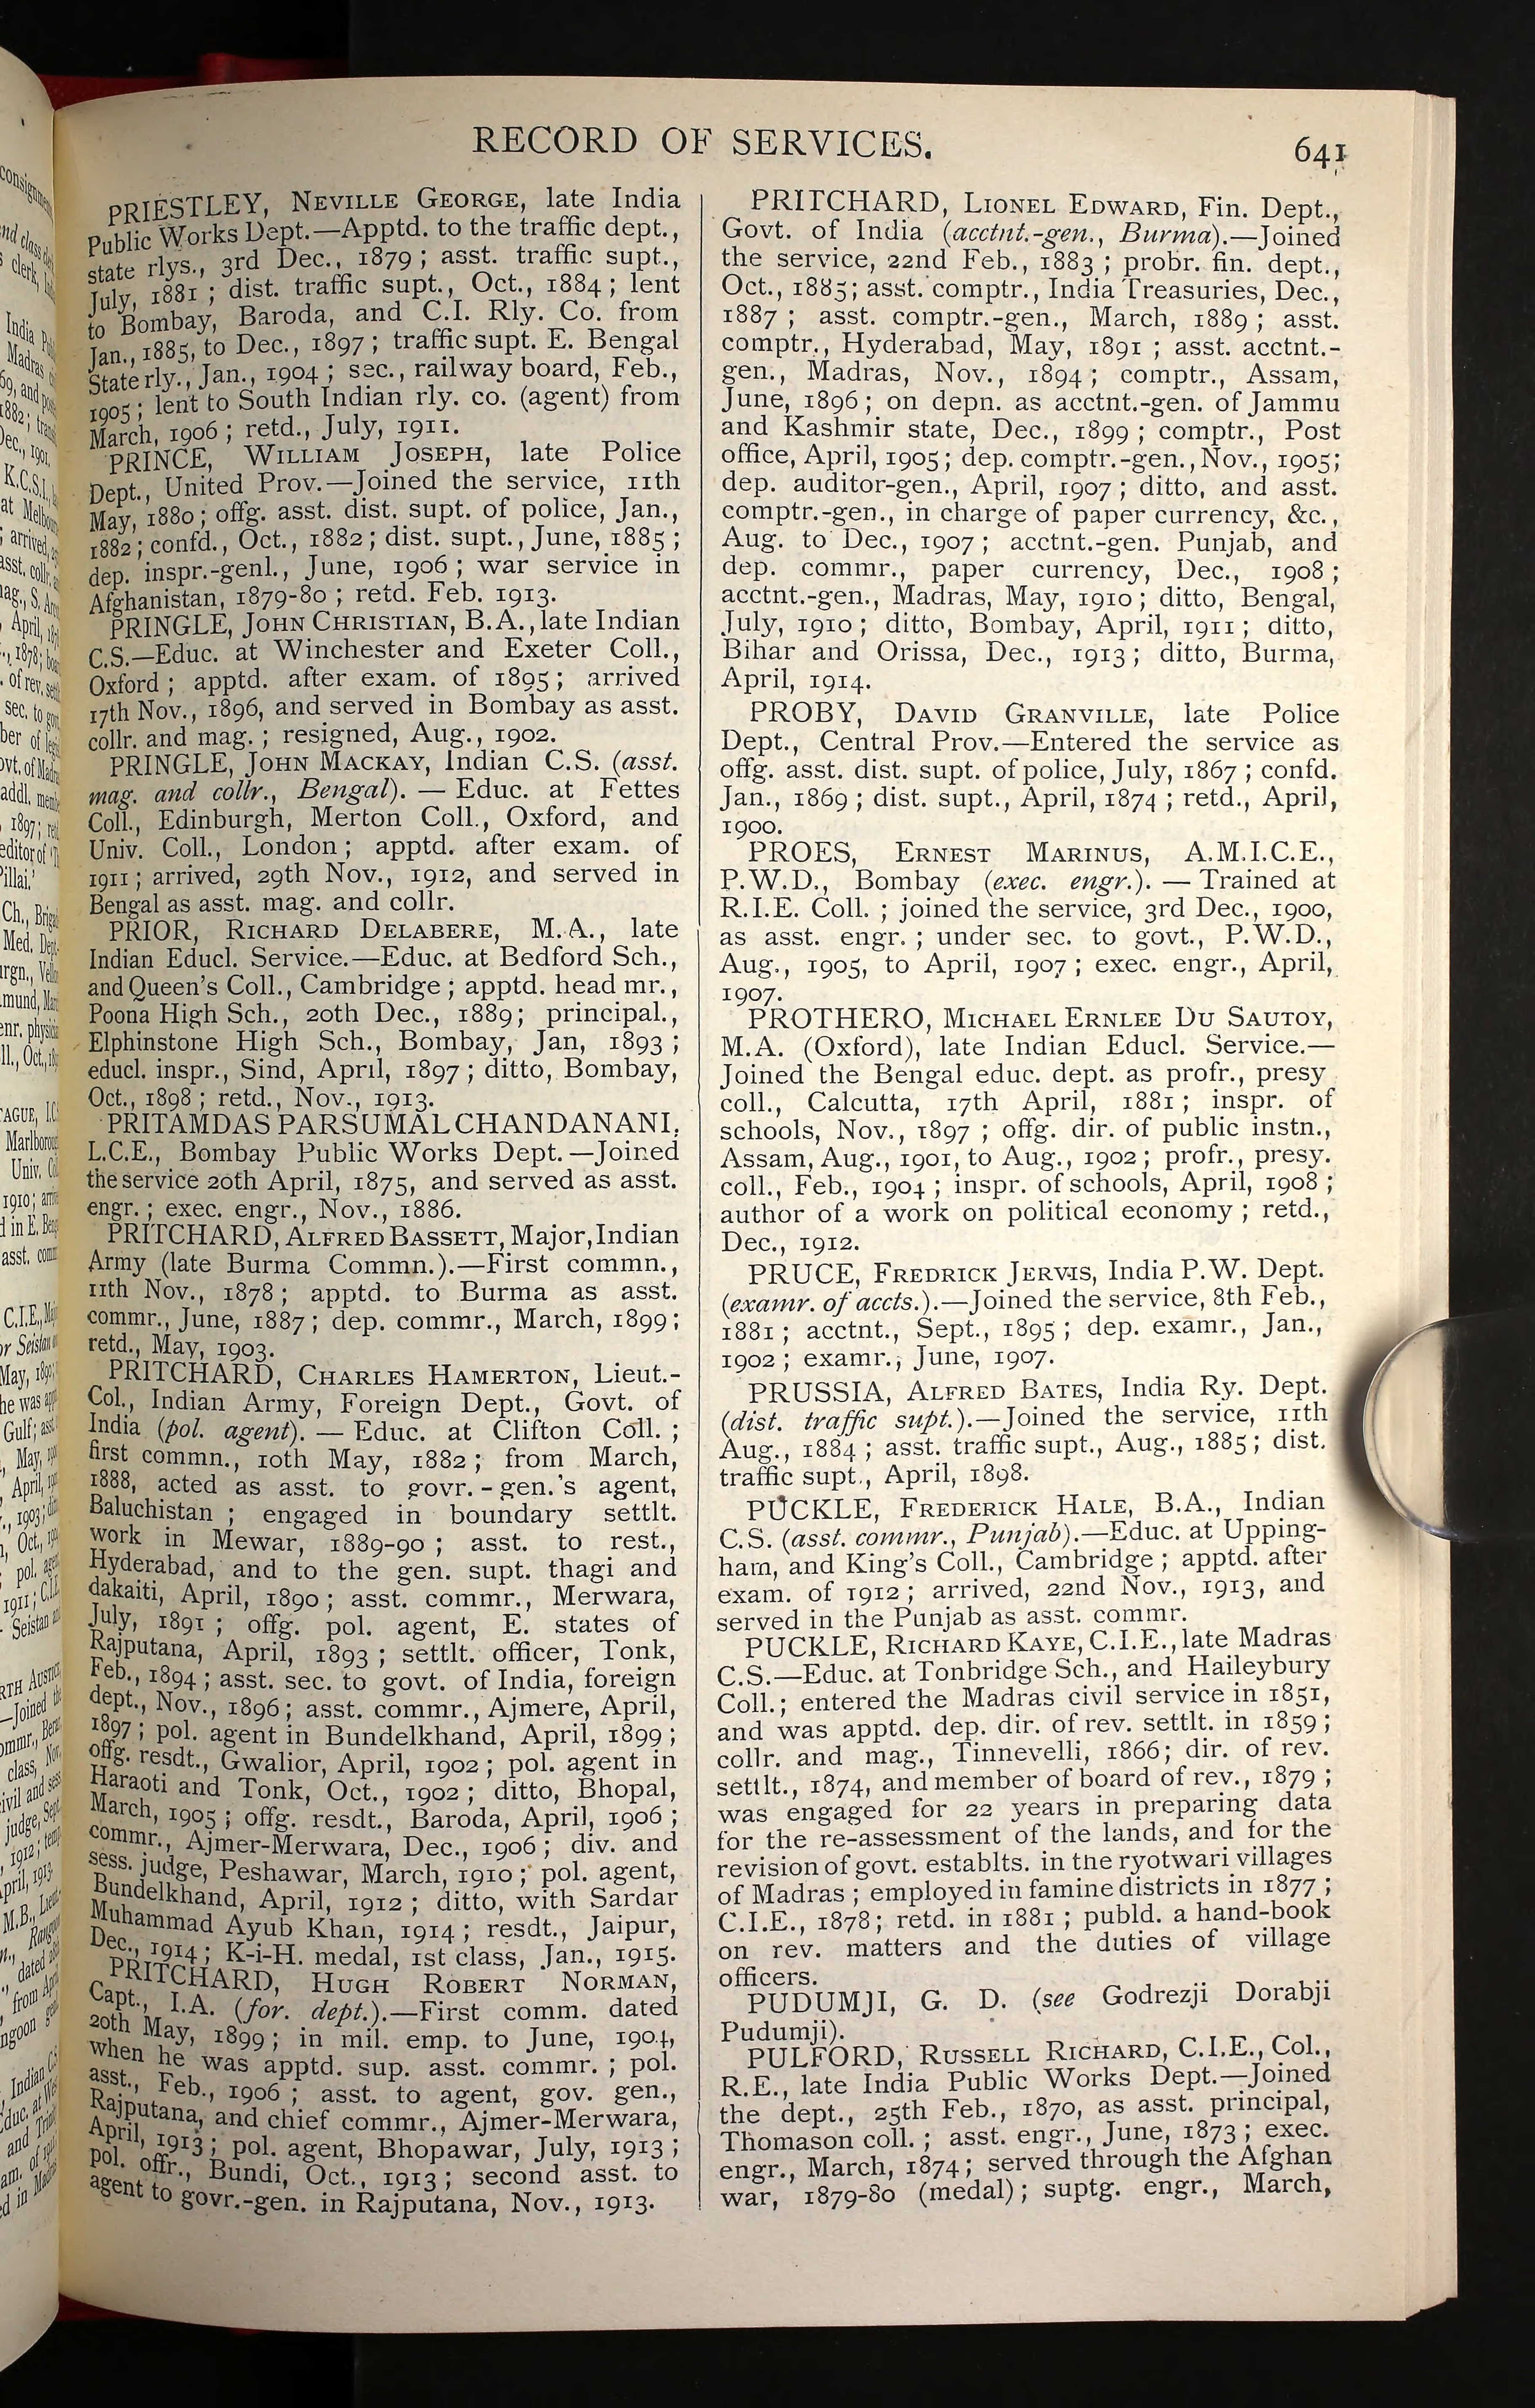 RECORD OF SERVICES.
641
PRIESTLEY, NEVILLE GEORGE, late India
Public Works Dept.—Apptd. to the traffic dept.,
state rlys., 3rd Dec., 1879; asst. traffic supt.,
July, 1881; dist. traffic supt., Oct., 1884; lent
to Bombay, Baroda, and C.I. Rly. Co. from
Jan., 1885, to Dec., 1897; traffic supt. E. Bengal
State rly., Jan., 1904; sec., railway board, Feb.,
1905; lent to South Indian rly. co. (agent) from
March, 1906; retd., July, 1911.
PRINCE, WILLIAM JOSEPH, late Police
Dept., United Prov.—Joined the service, 11th
May, 1880; offg. asst. dist. supt. of police, Jan.,
1882; confd., Oct., 1882; dist. supt., June, 1885;
dep. inspr.-genl., June, 1906; war service in
Afghanistan, 1879-80; retd. Feb. 1913.
PRINGLE, JOHN CHRISTIAN, B.A., late Indian
C.S.—Educ. at Winchester and Exeter Coll.,
Oxford; apptd. after exam. of 1895; arrived
17th Nov., 1896, and served in Bombay as asst.
collr. and mag.; resigned, Aug., 1902.
PRINGLE, JOHN MACKAY, Indian C.S. (asst.
mag. and collr., Bengal). — Educ. at Fettes
Coll., Edinburgh, Merton Coll., Oxford, and
Univ. Coll., London; apptd. after exam. of
1911; arrived, 29th Nov., 1912, and served in
Bengal as asst. mag. and collr.
PRIOR, RICHARD DELABERE, M.A., late
Indian Educl. Service.—Educ. at Bedford Sch.,
and Queen's Coll., Cambridge; apptd. head mr.,
Poona High Sch., 20th Dec., 1889; principal.,
Elphinstone High Sch., Bombay, Jan, 1893;
educl. inspr., Sind, April, 1897; ditto, Bombay,
Oct., 1898; retd., Nov., 1913.
PRITAMDAS PARSUMAL CHANDANANI.
L.C.E., Bombay Public Works Dept.—Joined
the service 20th April, 1875, and served as asst.
engr.; exec. engr., Nov., 1886.
PRITCHARD, ALFRED BASSETT, Major, Indian
Army (late Burma Commn.).—First commn.,
11th Nov., 1878; apptd. to Burma as asst.
commr., June, 1887; dep. commr., March, 1899;
retd., May, 1903.
PRITCHARD, CHARLES HAMERTON, Lieut.-
Col., Indian Army, Foreign Dept., Govt. of
India (pol. agent). — Educ. at Clifton Coll.;
first commn., 10th May, 1882; from March,
1888, acted as asst. to govr.-gen.'s agent,
Baluchistan; engaged in boundary settlt.
work in Mewar, 1889-90; asst. to rest.,
Hyderabad, and to the gen. supt. thagi and
dakaiti, April, 1890; asst. commr., Merwara,
July, 1891; offg. pol. agent, E. states of
Rajputana, April, 1893; settlt. officer, Tonk,
Feb., 1894; asst. sec. to govt. of India, foreign
dept., Nov., 1896; asst. commr., Ajmere, April,
1897; pol. agent in Bundelkhand, April, 1899;
offg. resdt., Gwalior, April, 1902; pol. agent in
Haraoti and Tonk, Oct., 1902; ditto, Bhopal,
March, 1905; offg. resdt., Baroda, April, 1906;
commr., Ajmer-Merwara, Dec., 1906; div. and
sess. judge, Peshawar, March, 1910; pol. agent,
Bundelkhand, April, 1912; ditto, with Sardar
Muhammad Ayub Khan, 1914; resdt., Jaipur,
Dec., 1914; K-i-H. medal, 1st class, Jan., 1915.
PRITCHARD, HUGH ROBERT NORMAN,
Capt., I.A. (for. dept.).—First comm. dated
20th May, 1899; in mil. emp. to June, 1904,
when he was apptd. sup. asst. commr.; pol.
asst., Feb., 1906; asst. to agent, gov. gen.,
Rajputana, and chief commr., Ajmer-Merwara,
April, 1913; pol. agent, Bhopawar, July, 1913;
pol. offr., Bundi, Oct., 1913; second asst. to
agent to govr.-gen. in Rajputana, Nov., 1913.
PRITCHARD, LIONEL EDWARD, Fin. Dept.,
Govt. of India (acctnt.-gen., Burma).—Joined
the service, 22nd Feb., 1883; probr. fin. dept.,
Oct., 1885; asst. comptr., India Treasuries, Dec.,
1887; asst. comptr.-gen., March, 1889; asst.
comptr., Hyderabad, May, 1891; asst. acctnt.-
gen., Madras, Nov., 1894; comptr., Assam,
June, 1896; on depn. as acctnt.-gen. of Jammu
and Kashmir state, Dec., 1899; comptr., Post
office, April, 1905; dep. comptr.-gen., Nov., 1905;
dep. auditor-gen., April, 1907; ditto, and asst.
comptr.-gen., in charge of paper currency, &c.,
Aug. to Dec., 1907; acctnt.-gen. Punjab, and
dep. commr., paper currency, Dec., 1908;
acctnt.-gen., Madras, May, 1910; ditto, Bengal,
July, 1910; ditto, Bombay, April, 1911; ditto,
Bihar and Orissa, Dec., 1913; ditto, Burma,
April, 1914.
PROBY, DAVID GRANVILLE, late Police
Dept., Central Prov.—Entered the service as
offg. asst. dist. supt. of police, July, 1867; confd.
Jan., 1869; dist. supt., April, 1874; retd., April,
1900.
PROES, ERNEST MARINUS, A.M.I.C.E.,
P.W.D., Bombay (exec. engr.). — Trained at
R.I.E. Coll.; joined the service, 3rd Dec., 1900,
as asst. engr.; under sec. to govt., P.W.D.,
Aug., 1905, to April, 1907; exec. engr., April,
1907.
PROTHERO, MICHAEL ERNLEE DU SAUTOY,
M.A. (Oxford), late Indian Educl. Service.—
Joined the Bengal educ. dept. as profr., presy
coll., Calcutta, 17th April, 1881; inspr. of
schools, Nov., 1897; offg. dir. of public instn.,
Assam, Aug., 1901, to Aug., 1902; profr., presy.
coll., Feb., 1904; inspr. of schools, April, 1908;
author of a work on political economy; retd.,
Dec., 1912.
PRUCE, FREDRICK JERVIS, India P.W. Dept.
(examr. of accts.).—Joined the service, 8th Feb.,
1881; acctnt., Sept., 1895; dep. examr., Jan.,
1902; examr., June, 1907.
PRUSSIA, ALFRED BATES, India Ry. Dept.
(dist. traffic supt.).—Joined the service, 11th
Aug., 1884; asst. traffic supt., Aug., 1885; dist.
traffic supt., April, 1898.
PUCKLE, FREDERICK HALE, B.A., Indian
C.S. (asst. commr., Punjab).—Educ. at Upping-
ham, and King's Coll., Cambridge; apptd. after
exam. of 1912; arrived, 22nd Nov., 1913, and
served in the Punjab as asst. commr.
PUCKLE, RICHARD KAYE, C.I.E., late Madras
C.S.—Educ. at Tonbridge Sch., and Haileybury
Coll.; entered the Madras civil service in 1851,
and was apptd. dep. dir. of rev. settlt. in 1859;
collr. and mag., Tinnevelli, 1866; dir. of rev.
settlt., 1874, and member of board of rev., 1879;
was engaged for 22 years in preparing data
for the re-assessment of the lands, and for the
revision of govt. establts. in the ryotwari villages
of Madras; employed in famine districts in 1877;
C.I.E., 1878; retd. in 1881; publd. a hand-book
on rev. matters and the duties of village
officers.
PUDUMJI, G. D. (see Godrezji Dorabji
Pudumji).
PULFORD, RUSSELL RICHARD, C.I.E., Col.,
R.E., late India Public Works Dept.—Joined
the dept., 25th Feb., 1870, as asst. principal,
Thomason coll.; asst. engr., June, 1873; exec.
engr., March, 1874; served through the Afghan
war, 1879-80 (medal); suptg. engr., March,